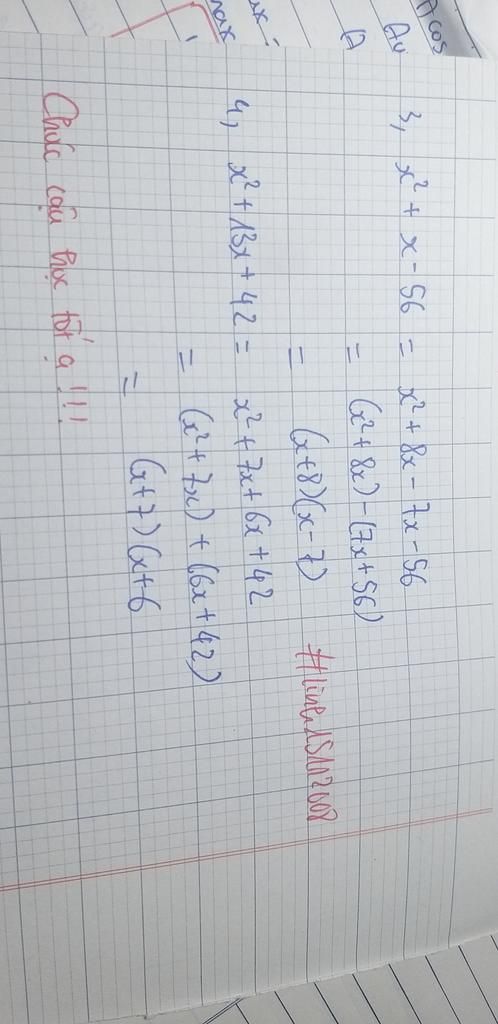 A cos
Av
A
max
3, x² + x - 56 = x² + 8x - 7x - 56
= (x² + 8x) - (7x + 56)
= (x+8)(x-7)
4, x² + 13x + 42 = x² + 7x + 6x + 42
= (x² + 7x) + (6x + 42)
= (x+7)(x+6
Chúc cậu học tốt ạ !!!